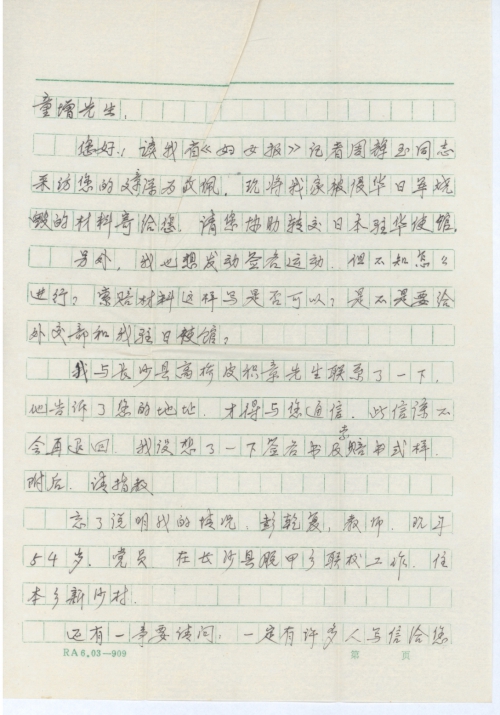 童增先生，
您好！读我省《妇女报》记者周静玉同志
采访您的文章深为敬佩，现将我家被侵华日军烧
毁的材料寄给您，请您协助转交日本驻华使馆。
另外，我也想发动签名运动，但不知怎么
进行？索赔材料这样写是否可以？是不是要给
外交部和我驻日使馆？
我与长沙县高桥皮积章先生联系了一下，
他告诉了您的地址，才得与您通信，此信谅不
会再退回，我设想了一下签名书及索赔书式样，
附后，请指教
忘了说明我的情况，彭乾夏，教师，现年
54岁，党员 在长沙县甲乡联校工作，住
本乡新沙村。
还有一事要请问：一定有许多人写信给您
RA6.03—909
第 页